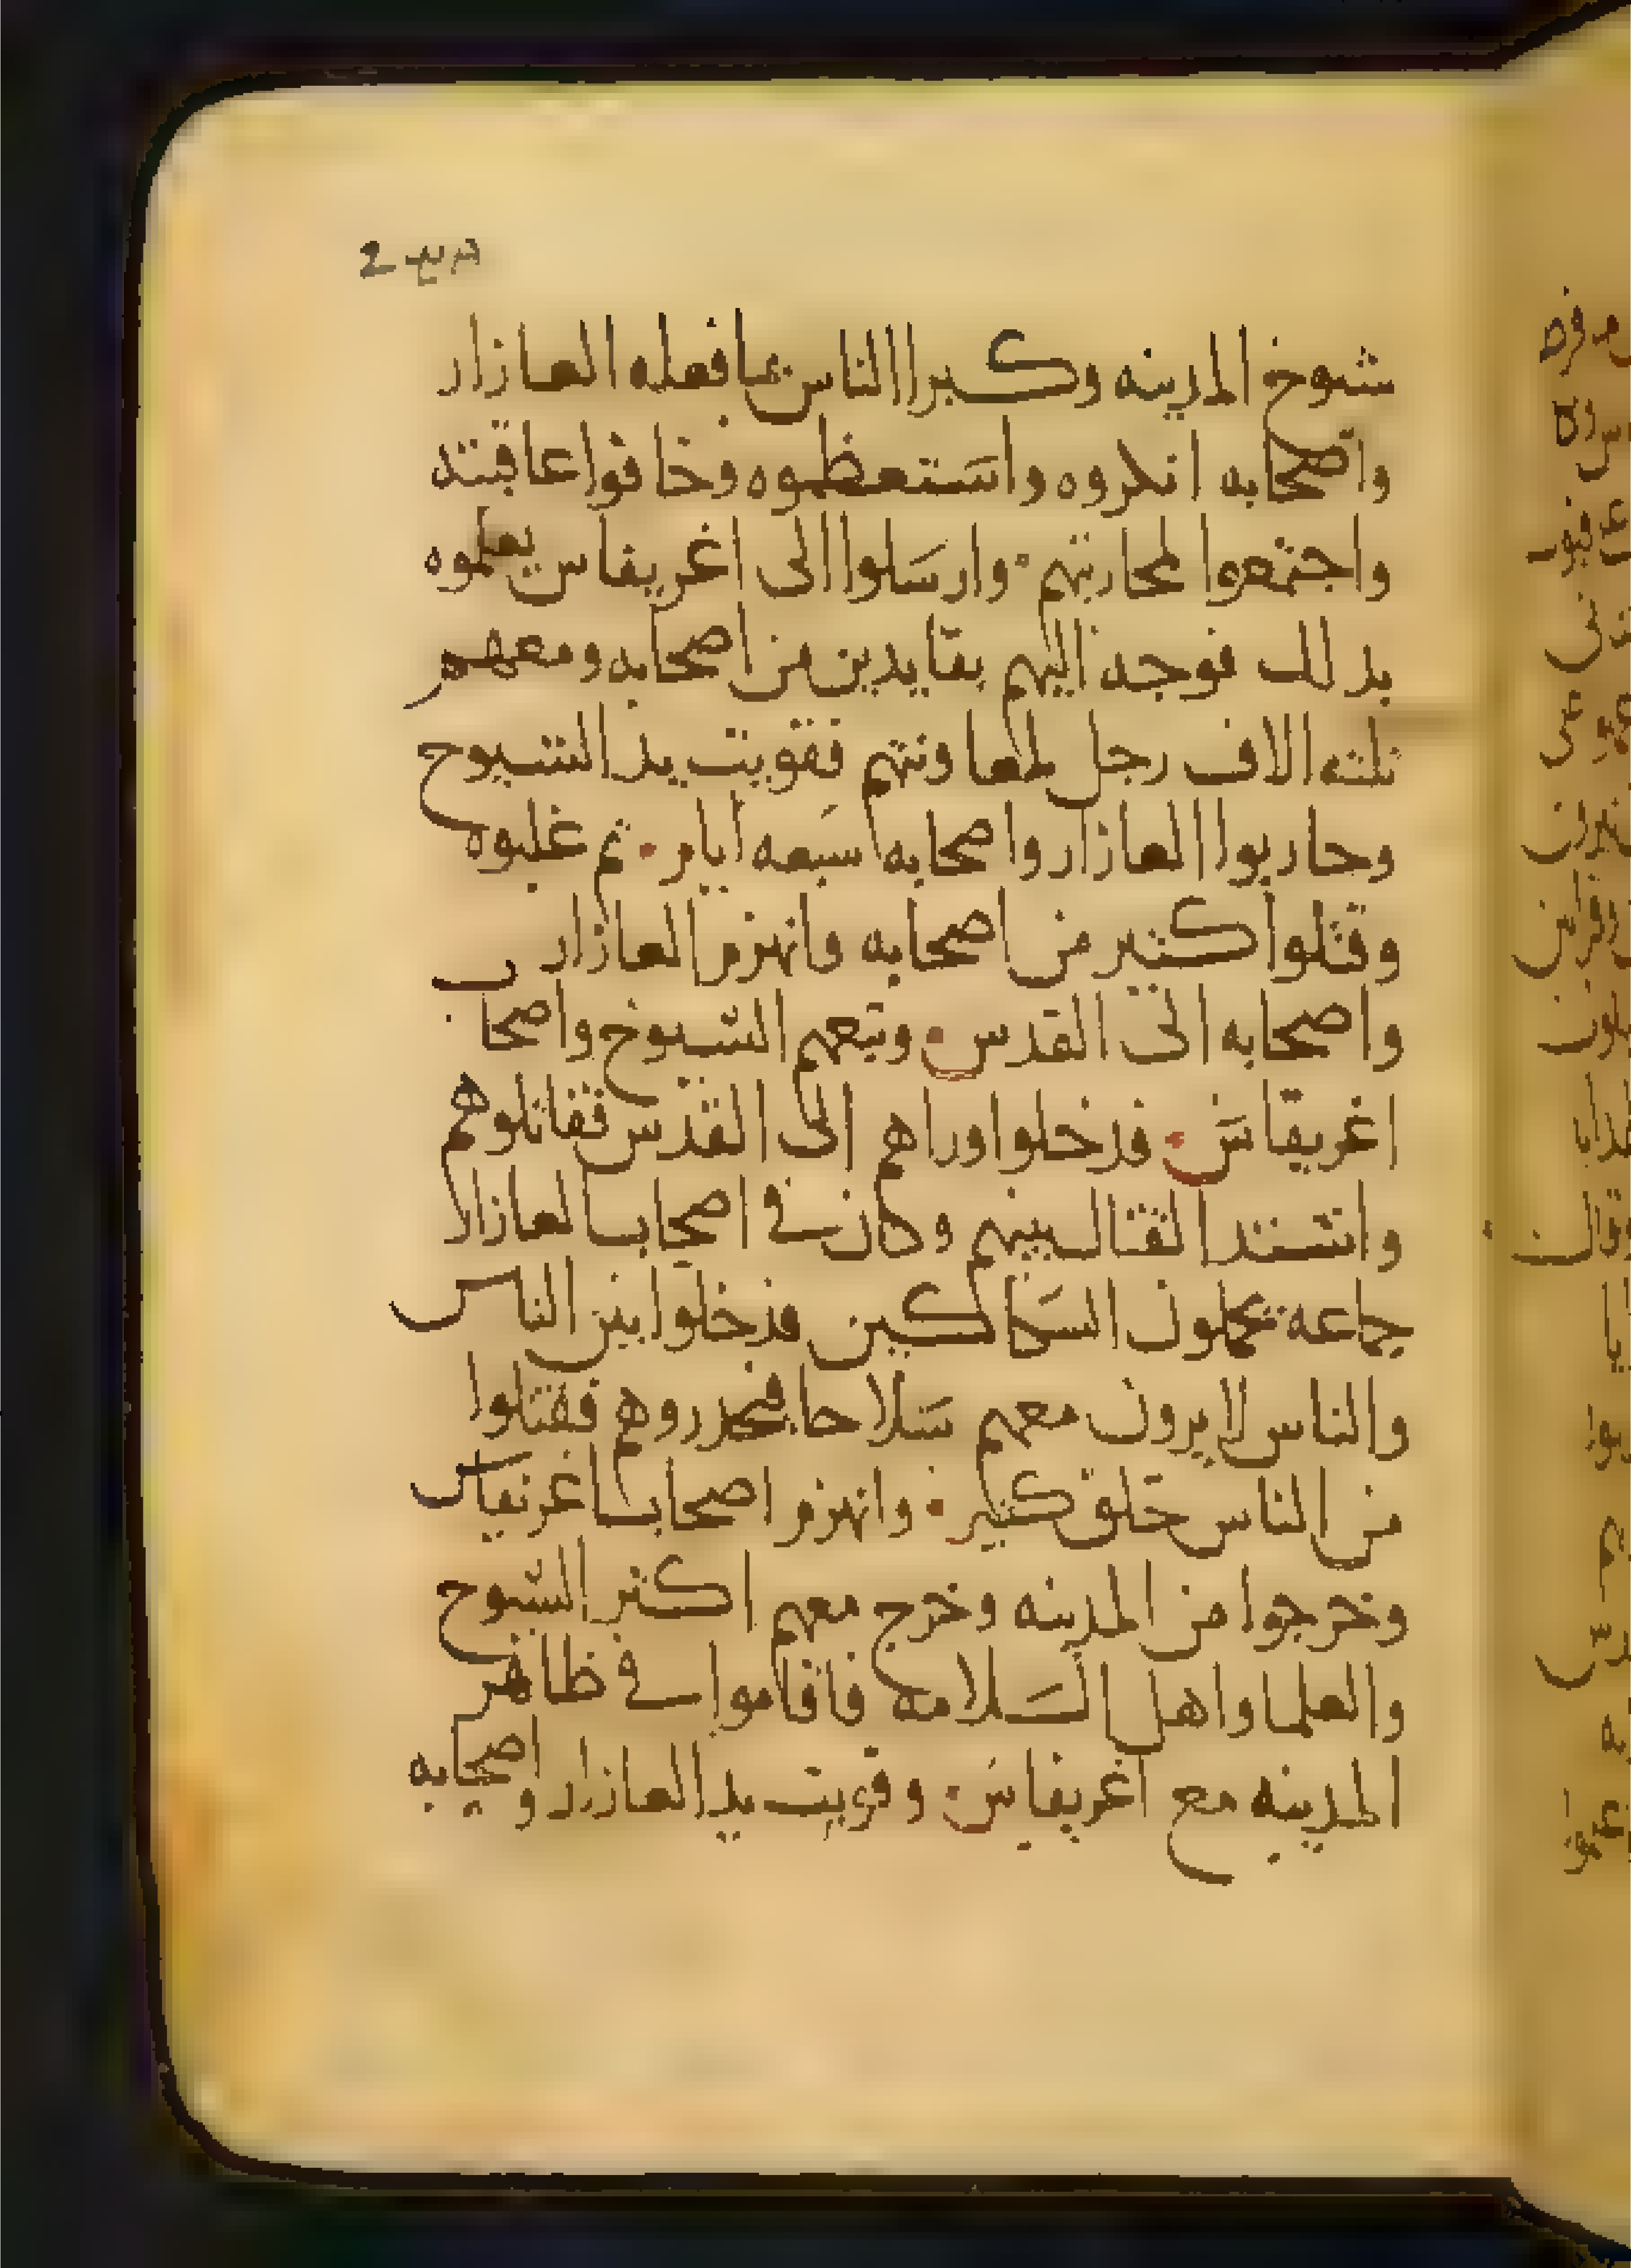 شيوخ المدينه وكبرا الناس بما فعله العازار
واصحابه انكروه واستعظموه وخافوا عاقبته
واجتمعوا لمحاربتهم. وارسلوا الى اغريفاس يعلموه
بذلك فوجه اليهم بقايدين من اصحابه ومعهم
ثلثه الاف رجل لمعاونتهم فقويت يد الشيوخ
وحاربوا العازار واصحابه سبعه ايام. ثم غلبوه
وقتلوا كثير من اصحابه وانهزم العازار
واصحابه الى القدس. وتبعهم الشيوخ واصحاب
اغريفاس. فدخلوا وراهم الى القدس فقاتلوهم
واشتد القتال بينهم وكان في اصحاب العازار
جماعه يحملون السكاكين فدخلوا بين الناس
والناس لا يرون معهم سلاحا فيحدروهم فقتلوا
من الناس خلق كثير. وانهزم اصحاب اغريفاس
وخرجوا من المدينه وخرج معهم اكثر الشيوخ
والعلما واهل السلامه فاقاموا في ظاهر
المدينه مع اغريفاس. وقويت يد العازار واصحابه